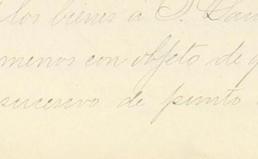 los bienes á S.
menos con objeto de q
sucesivo de punto